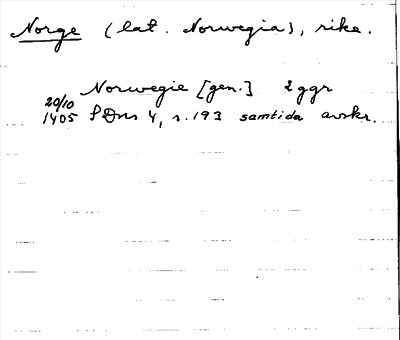 Norge (lat. Norwegia), rike.
Norwegie [gen.] 2 ggr
20/10
1405 SDns 4, s. 193 samtida avskr.